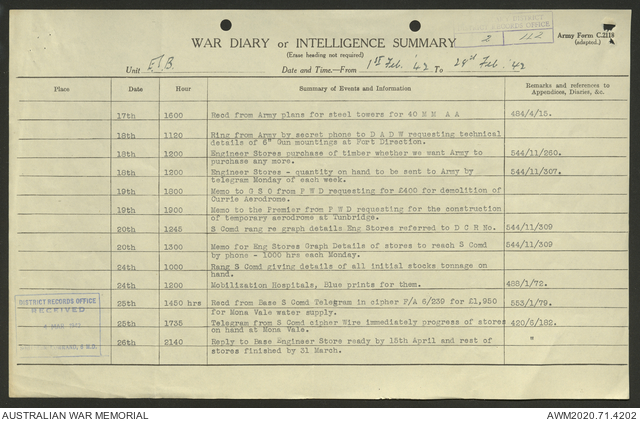 DISTRICT
RECORDS OFFICE
2 112
Army Form C.2118
(adapted.)
WAR DIARY or INTELLIGENCE SUMMARY
(Erase heading not required)
Unit Date and Time.—From 1st Feb. '42 To Feb. '42
Place Date Hour Summary of Events and Information Remarks and references to
Appendices, Diaries, &c.
17th 1600 Recd from Army plans for steel towers for 40 M M A A 484/4/15.
18th 1120 Ring from Army by secret phone to D A D W requesting technical
details of 6" Gun mountings at Fort Direction.
18th 1200 Engineer Stores purchase of timber whether we want Army to 544/11/260.
purchase any more.
18th 1200 Engineer Stores - quantity on hand to be sent to Army by 544/11/307.
telegram Monday of each week.
19th 1800 Memo to G S O from P W D requesting for £400 for demolition of
Currie Aerodrome.
19th 1900 Memo to the Premier from P W D requesting for the construction
of temporary aerodrome at Tunbridge.
20th 1245 S Comd rang re graph details Eng Stores referred to D C R No. 544/11/309
20th 1300 Memo for Eng Stores Graph Details of stores to reach S Comd 544/11/309
by phone - 1000 hrs each Monday.
24th 1000 Rang S Comd giving details of all initial stocks tonnage on
hand.
24th 1200 Mobilization Hospitals, Blue prints for them. 488/1/72.
25th 1450 hrs Recd from Base S Comd Telegram in cipher F/A 6/239 for £1,950 553/1/79.
for Mona Vale water supply.
25th 1735 Telegram from S Comd cipher Wire immediately progress of stores 420/6/182.
on hand at Mona Vale.
26th 2140 Reply to Base Engineer Store ready by 15th April and rest of "
stores finished by 31 March.
DISTRICT RECORDS OFFICE
RECEIVED
MAR 1942
AUSTRALIAN WAR MEMORIAL AWM2020.71.4202